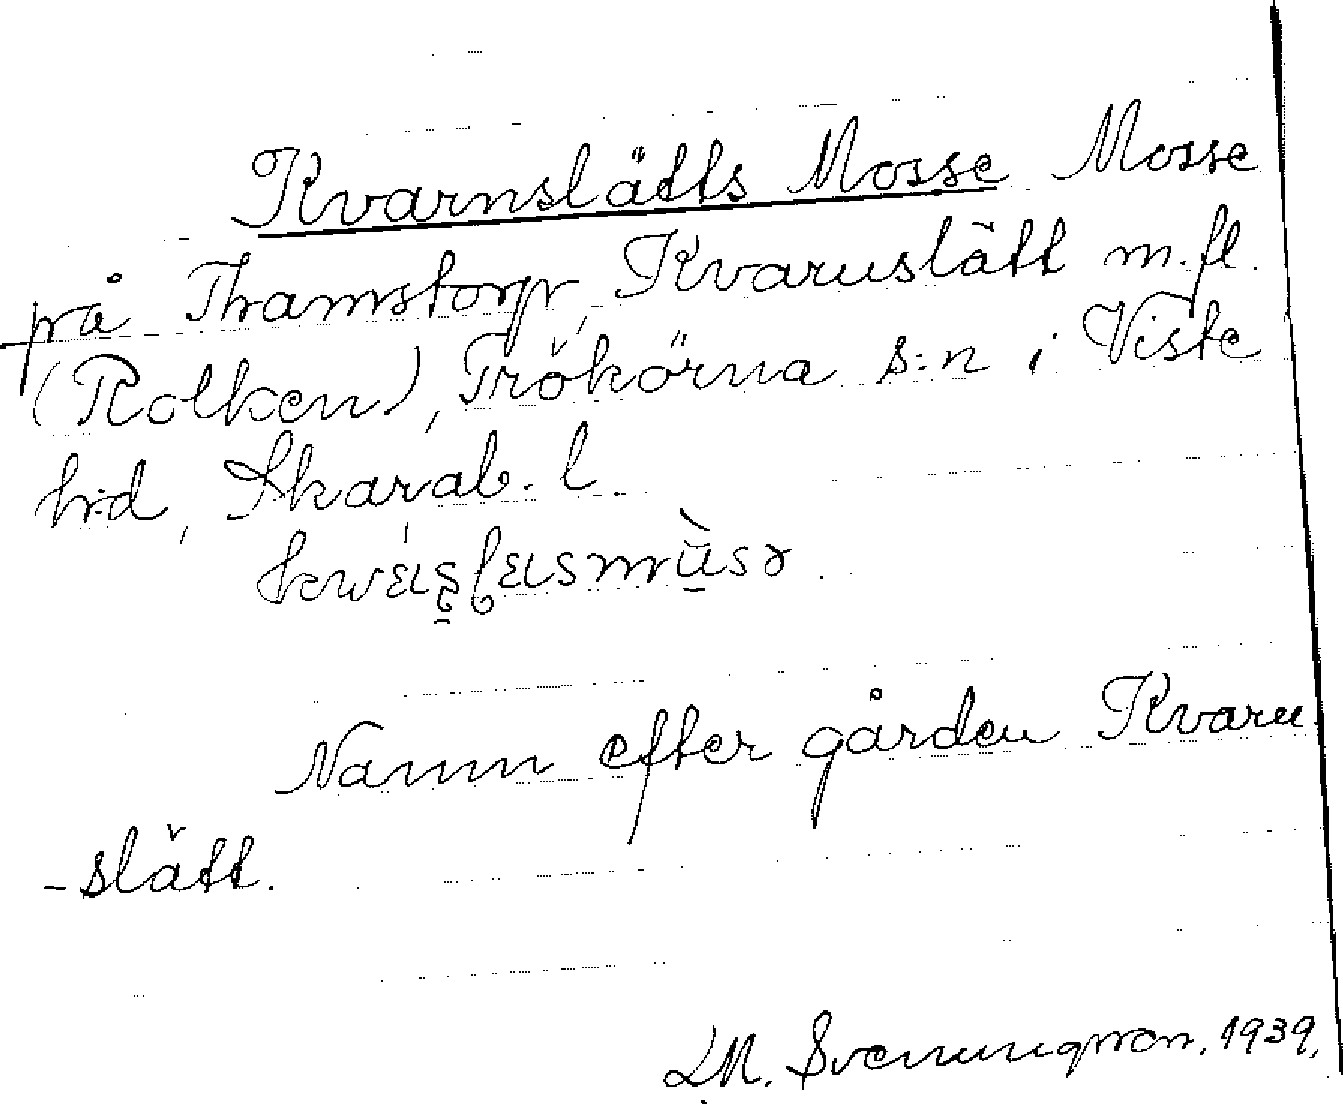 Kvarnslätts Mosse Mosse
på Thamstorp, Kvarnslätt m.fl.
(Rolken), Trökörna s:n i Viste
h:d, Skarab. l.
Namn efter gården Kvarn-
-slätt.
M. Svenungsson. 1939.